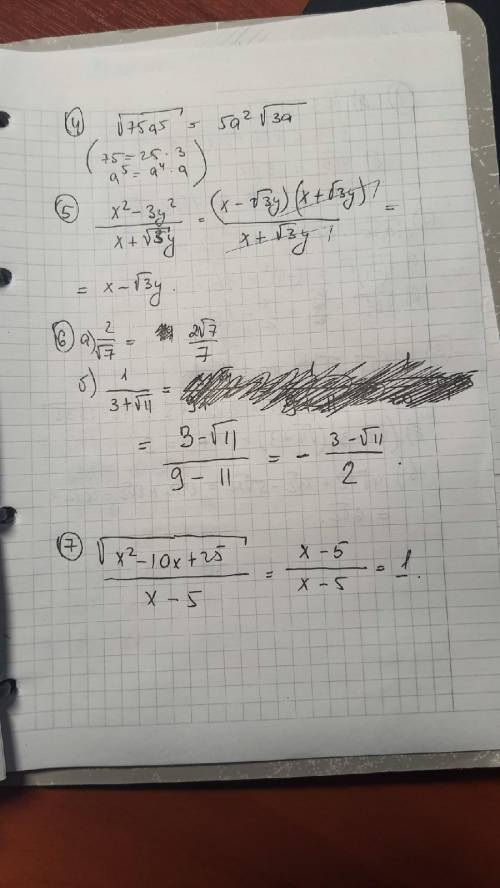 ④ √75a⁵ = 5a²√3a
(75 = 25 · 3
a⁵ = a⁴ · a)
⑤ (x² - 3y²)/(x + √3y) = ((x - √3y)(x + √3y))/(x + √3y) =
= x - √3y.
⑥ а) 2/√7 = 2√7/7
б) 1/(3+√11) =
= (3-√11)/(9-11) = - (3-√11)/2.
⑦ √(x² - 10x + 25)/(x - 5) = (x - 5)/(x - 5) = 1.